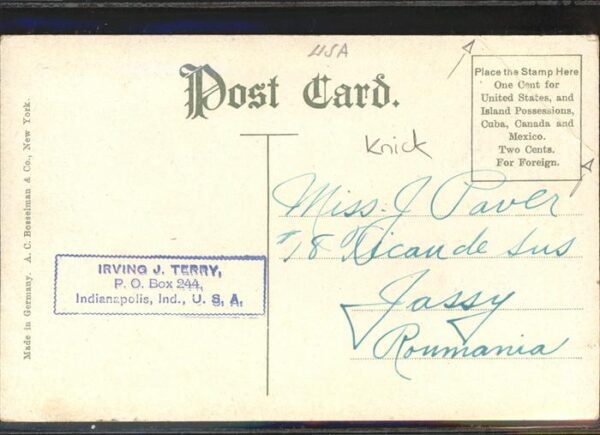 USA
Post Card.
Place the Stamp Here
One Cent for
United States, and
Island Possessions,
Cuba, Canada and
Mexico.
Two Cents.
For Foreign.
Knick
Made in Germany. A. C. Bosselman & Co., New York.
IRVING J. TERRY,
P. O. Box 244,
Indianapolis, Ind., U. S. A.
Miss. J Paver
#18 de sus
Jassy
Roumania